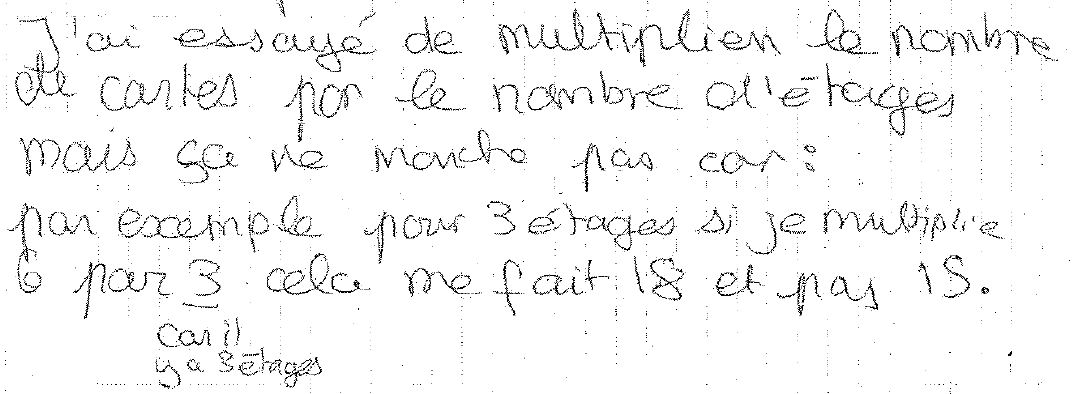 J'ai essayé de multiplier le nombre
de cartes par le nombre d'étages
mais ça ne marche pas car :
par exemple pour 3 étages si je multiplie
6 par 3 cela me fait 18 et pas 15.
car il
y a 3 étages